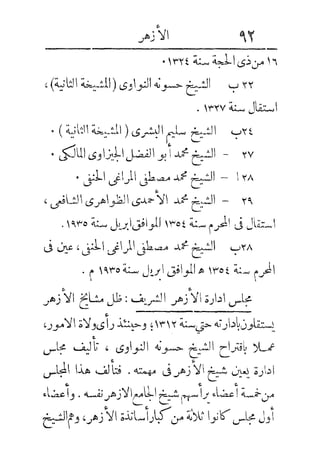 ٩٢ الأزهر
١٦ من ذى الحجة سنة ١٣٢٤ ٠
٢٢ ب الشيخ حسونه النواوى (المشيخة الثانية)،
استقال سنة ١٣٢٧ ٠
٢٤ ب الشيخ سليم البشرى (المشيخة الثانية) ٠
٢٧ - الشيخ محمد أبو الفضل الجيزاوى المالكى ٠
٢٨ ا - الشيخ محمد مصطفى المراغى الحنفى ٠
٢٩ - الشيخ محمد الأحمدى الظواهرى الشافعى،
استقال فى المحرم سنة ١٣٥٤ الموافق ابريل سنة ١٩٣٥.
٢٨ ب الشيخ محمد مصطفى المراغى الحنفى، عين فى
المحرم سنة ١٣٥٤ ه الموافق ابريل سنة ١٩٣٥ م .
مجلس ادارة الأزهر الشريف: ظل مشايخ الأزهر
يستقلون بادارته حتى سنة ١٣١٢؛ وحينئذ رأى ولاة الامور،
عملا باقتراح الشيخ حسونه النواوى، تأليف مجلس
ادارة يعين شيخ الأزهر فى مهمته . فتألف هذا المجلس
من خمسة أعضاء يرأسهم شيخ الجامع الازهر نفسه . وأعضاء
أول مجلس كانوا ثلاثة من كبار أساتذة الأزهر، وهم الشيخ